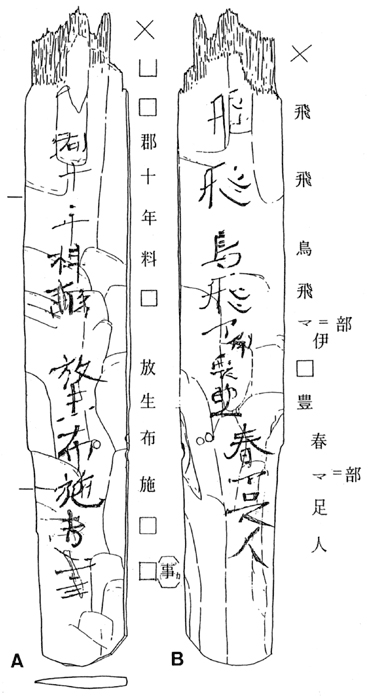 × □□郡十年料□ 放生布施□□
事カ
A
× 飛飛鳥飛マ伊□豊 春マ足人
=部
=部
B